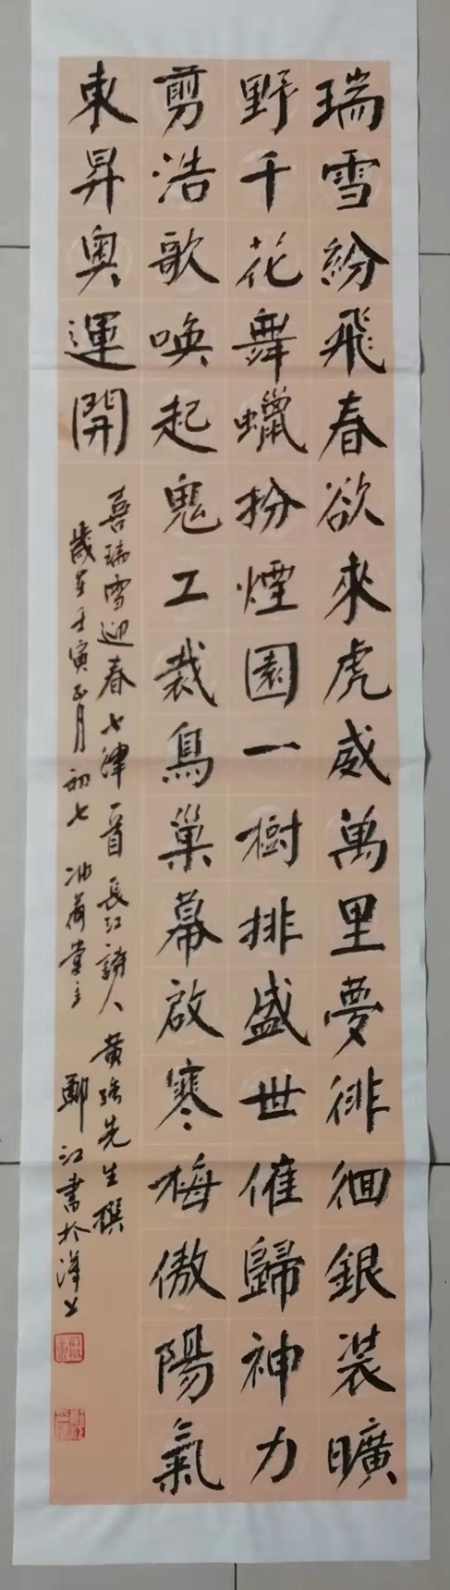 瑞雪紛飛春欲來虎威萬里夢徘徊銀裝曠
野千花舞蠟扮煙園一樹排盛世催歸神力
剪浩歌喚起鬼工裁鳥巢幕啟寒梅傲陽氣
東昇奧運開
喜瑞雪迎春七律一首長江詩人黃強先生撰
歲在壬寅正月初七荷堂主鄭江書於漢上